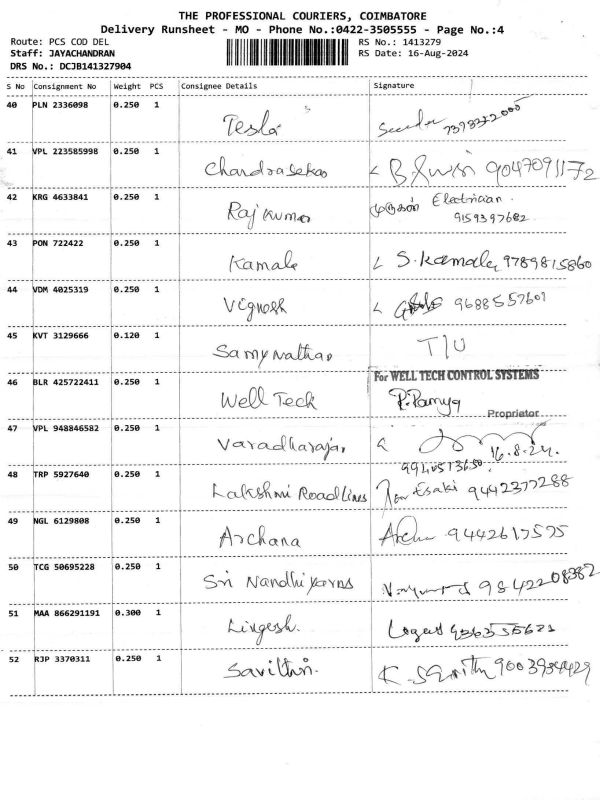 THE PROFESSIONAL COURIERS, COIMBATORE
Delivery Runsheet - MO - Phone No.:0422-3505555 - Page No.:4
Route: PCS COD DEL RS No.: 1413279
Staff: JAYACHANDRAN RS Date: 16-Aug-2024
DRS No.: DCJB141327904
S No Consignment No Weight PCS Consignee Details Signature
40 PLN 2336098 0.250 1 Tesla
41 VPL 223585998 0.250 1 Chandrasekar 9047091172
42 KRG 4633841 0.250 1 Rajkumar முருகன் Electrician.
9159397682
43 PON 722422 0.250 1 Kamala S.Kamala 9789815860
44 VDM 4025319 0.250 1 Vignesh 9688557601
45 KVT 3129666 0.120 1 Samynathan T/U
46 BLR 425722411 0.250 1 Well Teck For WELL TECH CONTROL SYSTEMS
P.Ramya
Proprietor
47 VPL 948846582 0.250 1 Varadharajan 16.8.24.
48 TRP 5927640 0.250 1 Lakshmi Roadlines Esaki 9442377288
49 NGL 6129808 0.250 1 Archana 9442617575
50 TCG 50695228 0.250 1 Sri Nandhi Yarns 9842208382
51 MAA 866291191 0.300 1 Lingesh.
52 RJP 3370311 0.250 1 Savithri.